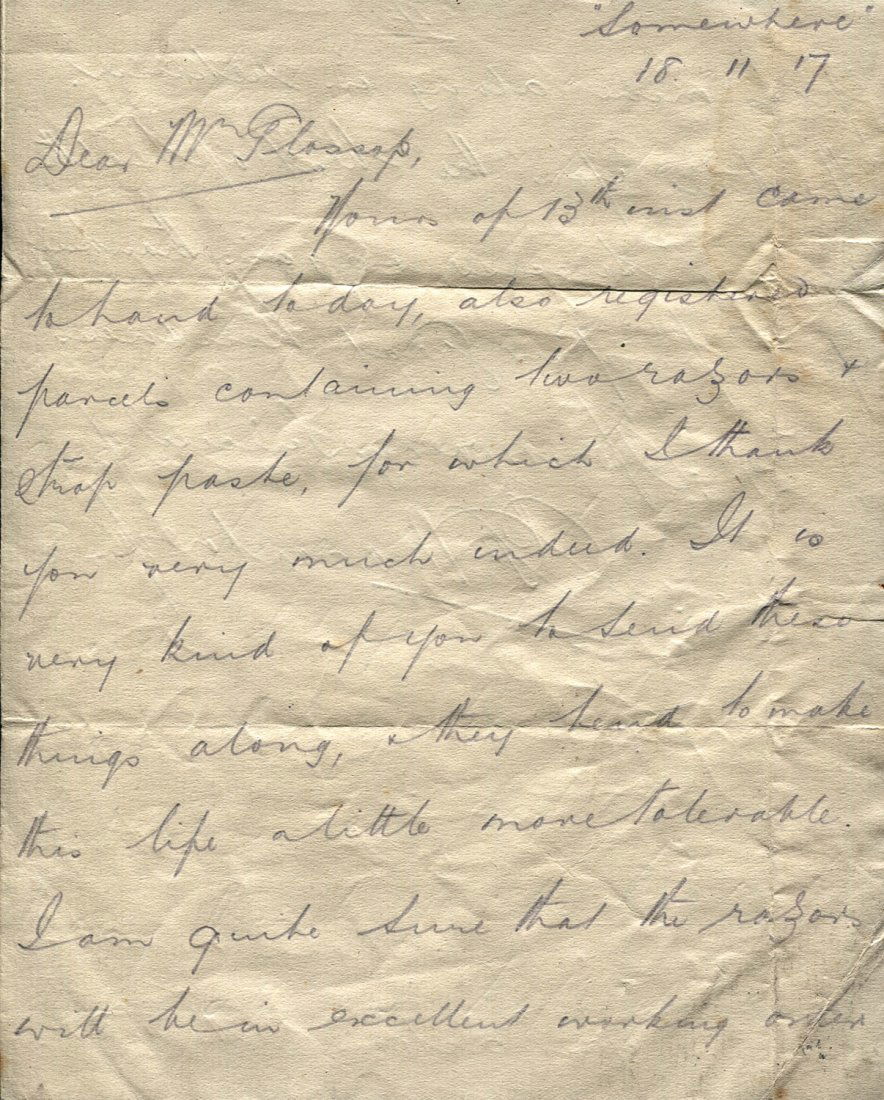 "Somewhere"
18. 11 17
Dear Mr Plossop,
Yours of 13th inst came
to hand today, also registered
parcels containing two razors +
strop paste, for which I thank
you very much indeed. It is
very kind of you to send these
things along, & they tend to make
this life a little more tolerable.
I am quite sure that the razors
will be in excellent working order